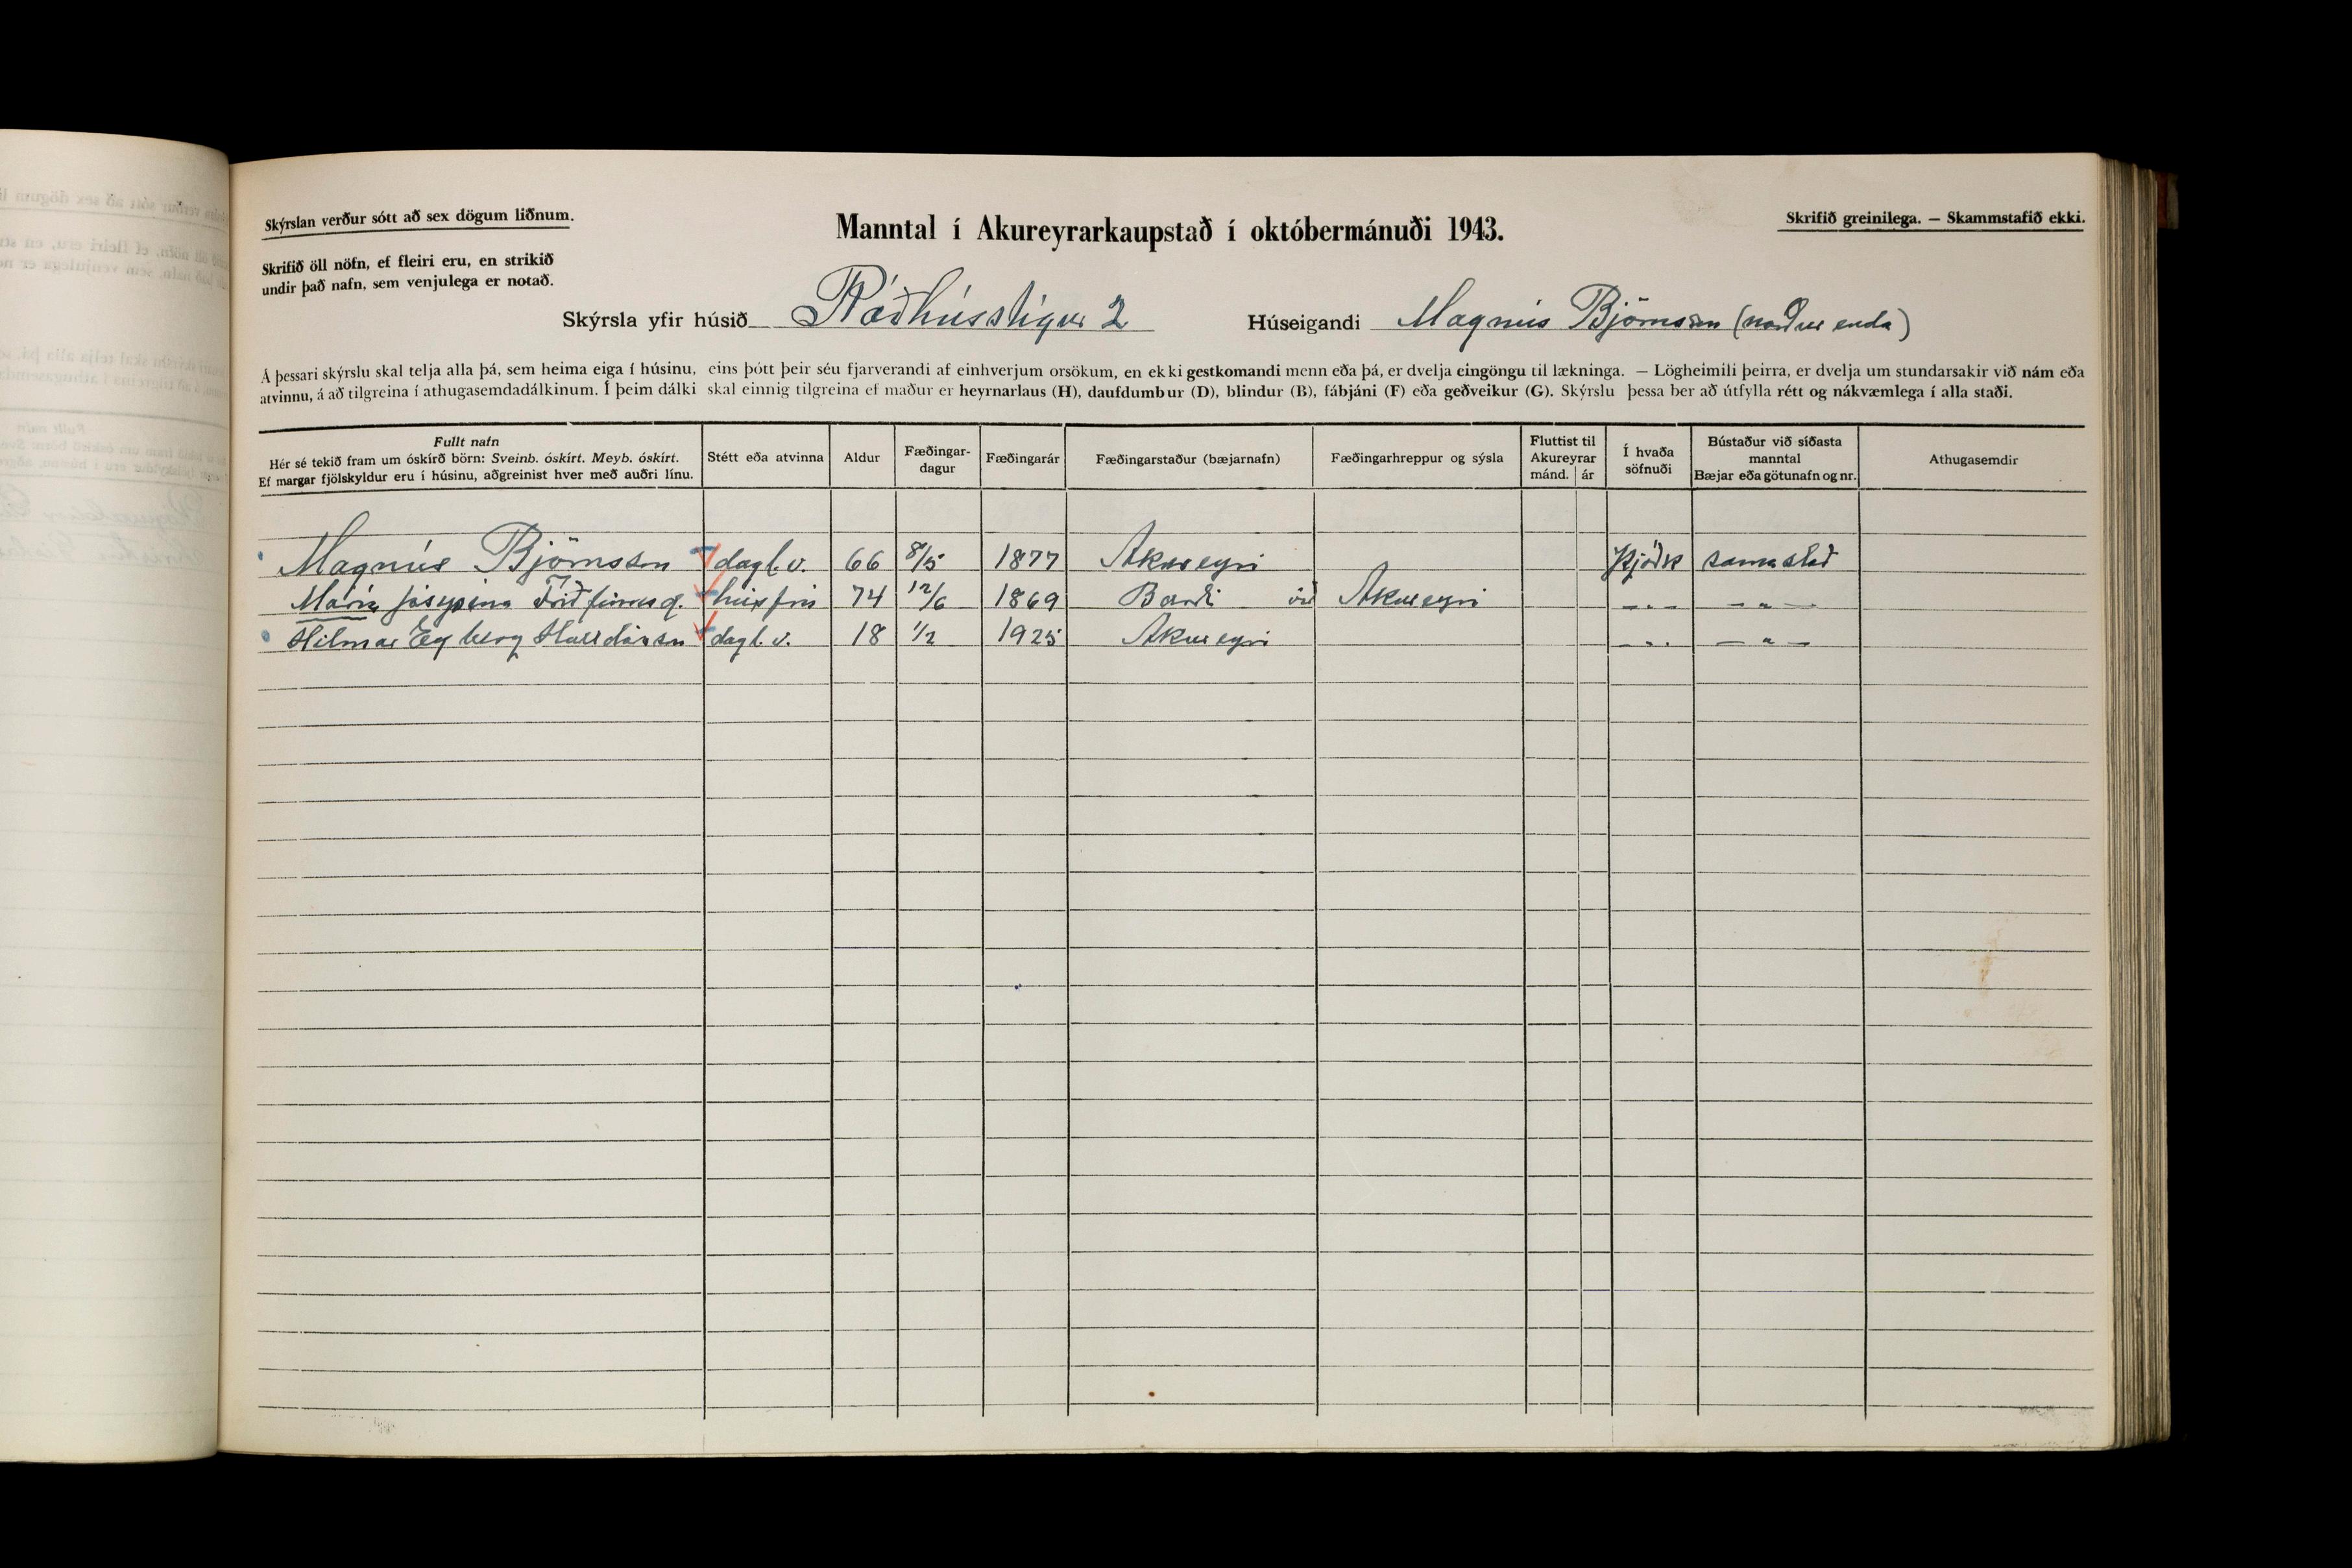 Skýrslan verður sótt að sex dögum liðnum.
Manntal í Akureyrarkaupstað í októbermánuði 1943.
Skrifið greinilega. — Skammstafið ekki.
Skrifið öll nöfn, ef fleiri eru, en strikið
undir það nafn, sem venjulega er notað.
Skýrsla yfir húsið Ráðhússtígur 2 Húseigandi Magnús Björnsson (norður enda)
Á þessari skýrslu skal telja alla þá, sem heima eiga í húsinu, eins þótt þeir séu fjarverandi af einhverjum orsökum, en ekki gestkomandi menn eða þá, er dvelja eingöngu til lækninga. — Lögheimili þeirra, er dvelja um stundarsakir við nám eða
atvinnu, á að tilgreina í athugasemdadálkinum. Í þeim dálki skal einnig tilgreina ef maður er heyrnarlaus (H), daufdumbur (D), blindur (B), fábjáni (F) eða geðveikur (G). Skýrslu þessa ber að útfylla rétt og nákvæmlega í alla staði.
Fullt nafn
Hér sé tekið fram um óskírð börn: Sveinb. óskírt. Meyb. óskírt.
Ef margar fjölskyldur eru í húsinu, aðgreinist hver með auðri línu.
Stétt eða atvinna
Aldur
Fæðingar-
dagur
Fæðingarár
Fæðingarstaður (bæjarnafn)
Fæðingarhreppur og sýsla
Fluttist til
Akureyrar
mánd. ár
Í hvaða
söfnuði
Bústaður við síðasta
manntal
Bæjar eða götunafn og nr.
Athugasemdir
Magnús Björnsson dagl.v. 66 8/5 1877 Akureyri Þjóðk samastað
María Jósepína Friðfinnsd. húsfrú 74 12/6 1869 Barði við Akureyri — „ — — „ —
Hilmar Egberg Halldórsson dagl.v. 18 1/2 1925 Akureyri — „ — — „ —